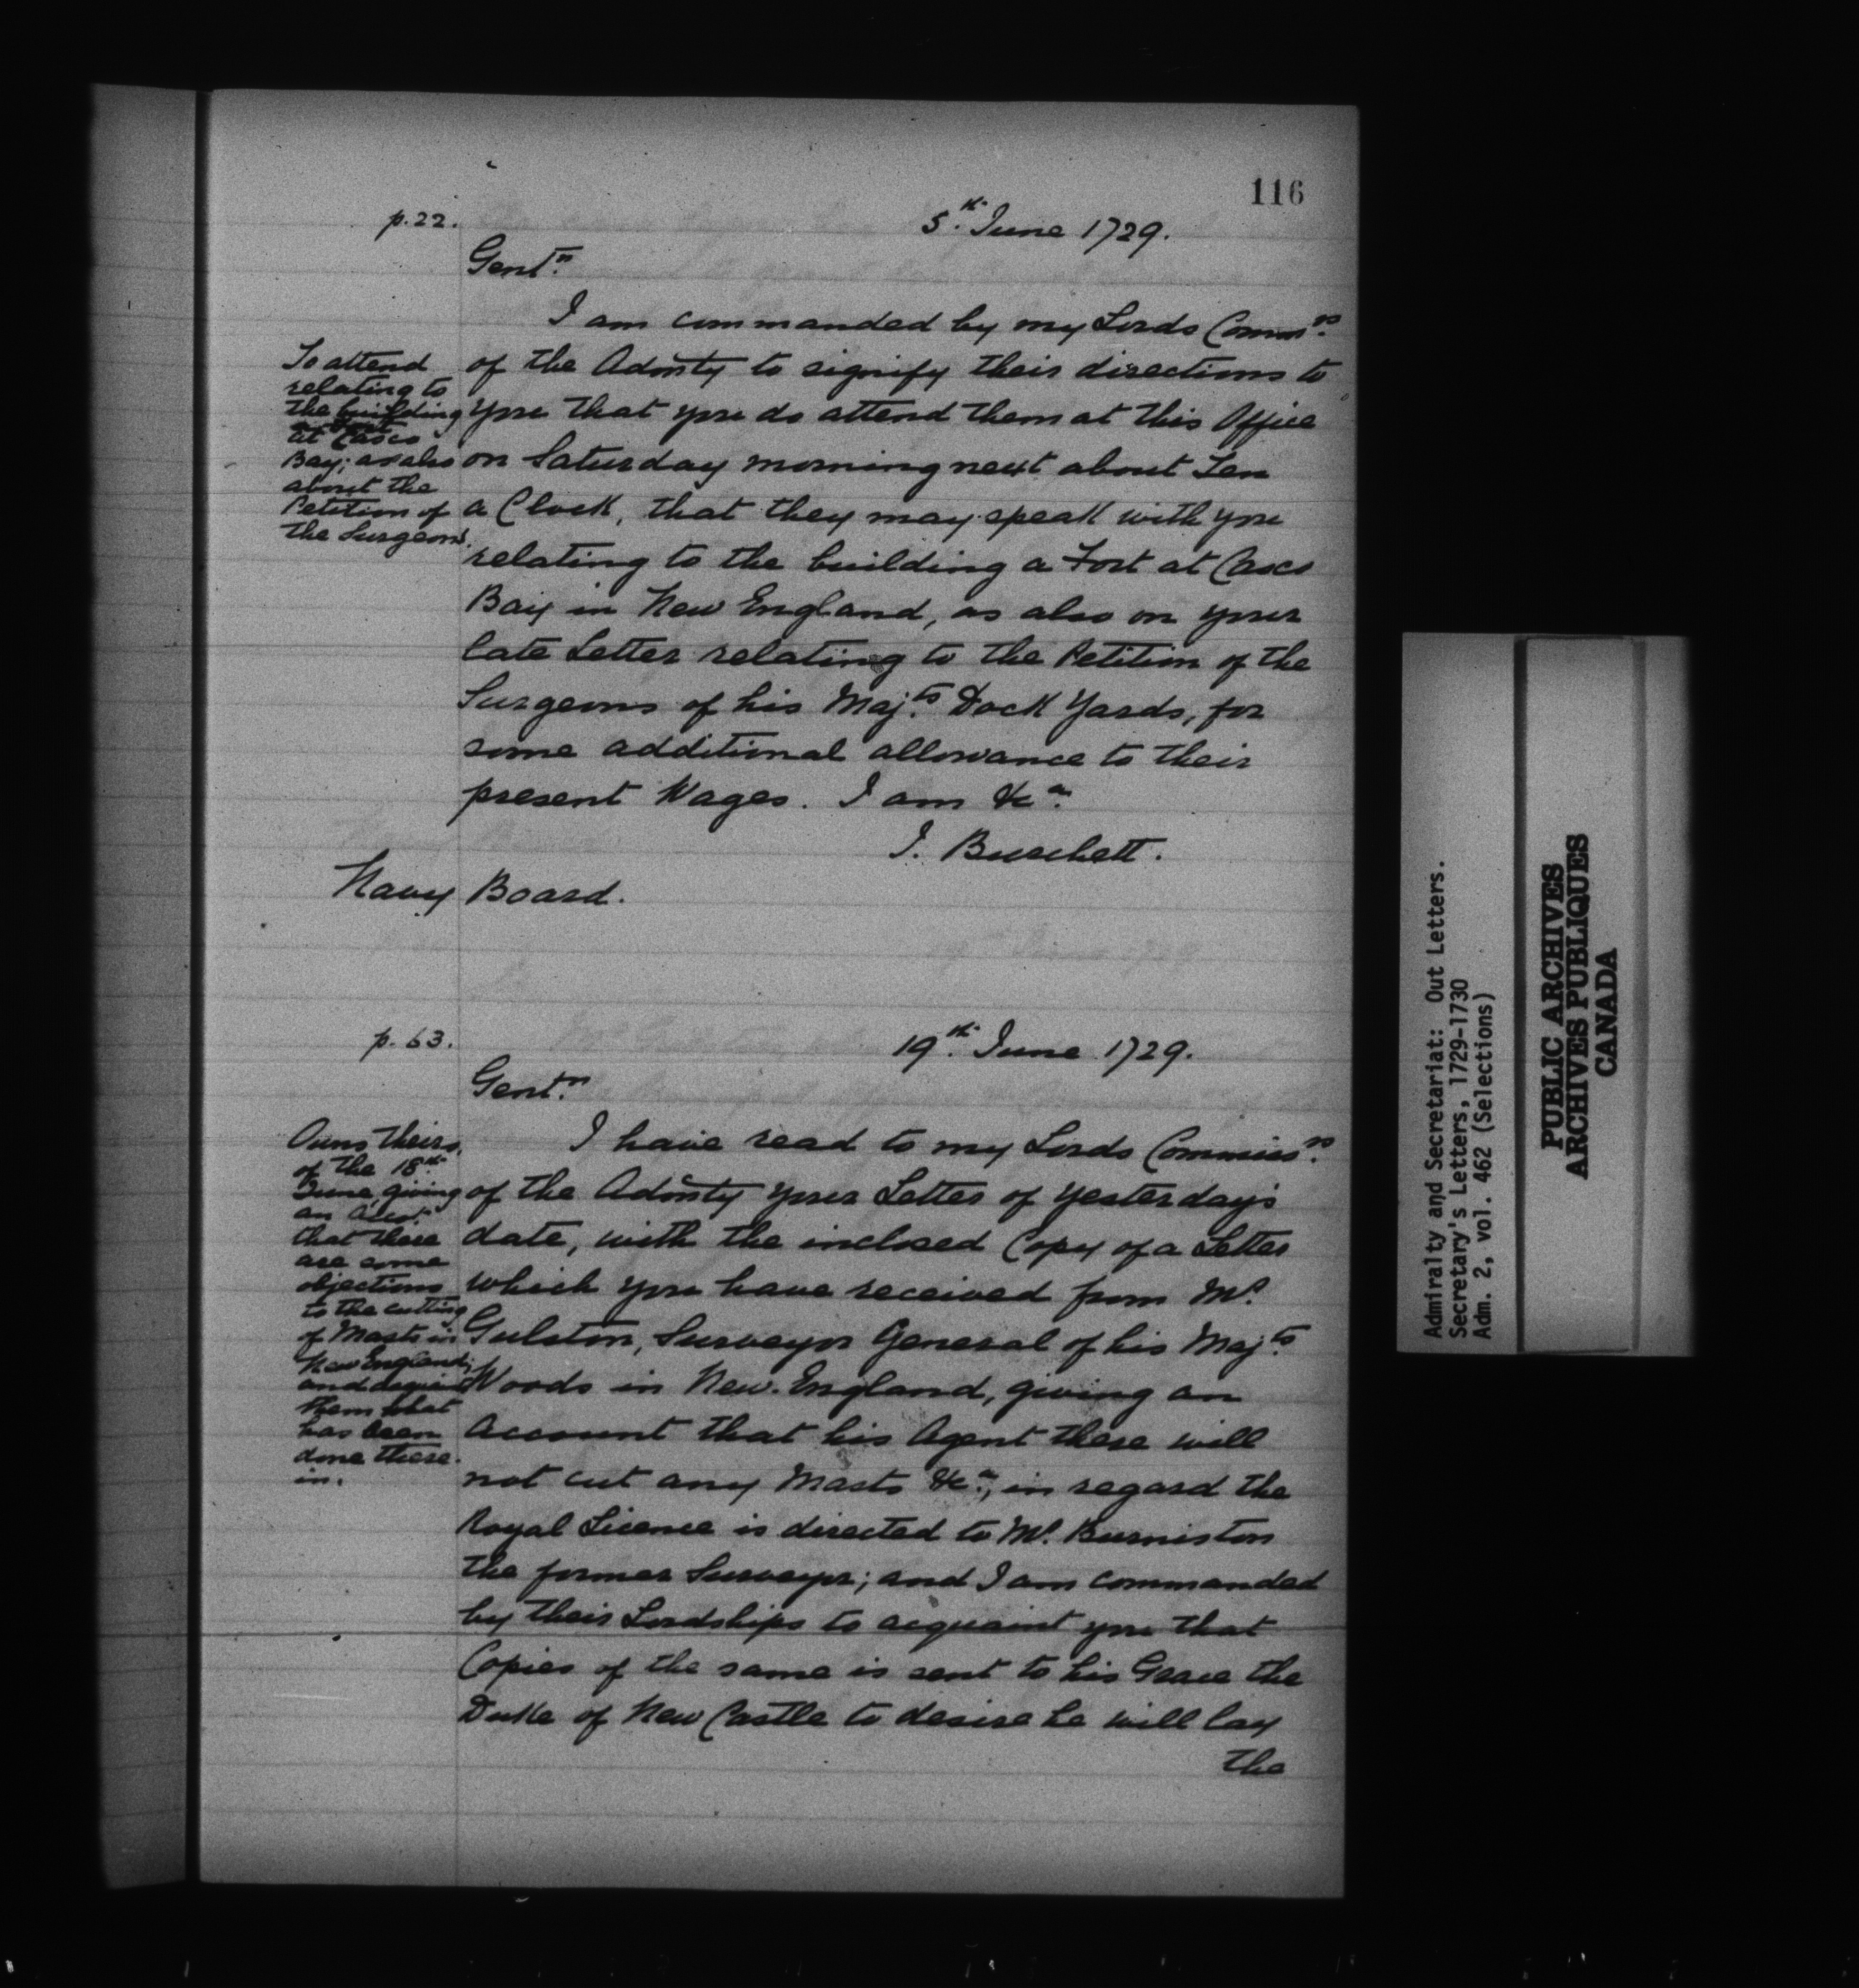 116
p. 22.
5.th June 1729.
Gent.n
I am commanded by my Lords Comm.rs
of the Admty to signify their directions to
you that you do attend them at this Office
on Saturday morning next about Ten
a Clock, that they may speak with you
relating to the building a Fort at Casco
Bay in New England, as also on your
late Letter relating to the Petition of the
Surgeons of his Maj.ts Dock Yards, for
some additional allowance to their
present Wages. I am &c.a
J. Burchett.
Navy Board.
To attend
relating to
the building
a Fort
at Casco
Bay; as also
about the
Petition of
the Surgeons.
p. 63.
19.th June 1729.
Gent.n
I have read to my Lords Commiss.rs
of the Admty your Letter of yesterday's
date, with the inclosed Copy of a Letter
which you have received from Mr.
Gulston, Surveyor General of his Maj.ts
Woods in New. England, giving an
account that his Agent there will
not cut any Masts &c.a, in regard the
Royal Licence is directed to Mr. Burniston
the former Surveyor; and I am commanded
by their Lordships to acquaint you that
Copies of the same is sent to his Grace the
Duke of New Castle to desire he will lay
the
Owns theirs
of the 18th
June, giving
an Acco.t
that there
are some
objections
to the cutting
of Masts in
New England;
and
them what
has been
done there-
in.
Admiralty and Secretariat: Out Letters.
Secretary's Letters, 1729-1730
Adm. 2, vol. 462 (Selections)
PUBLIC ARCHIVES
ARCHIVES PUBLIQUES
CANADA